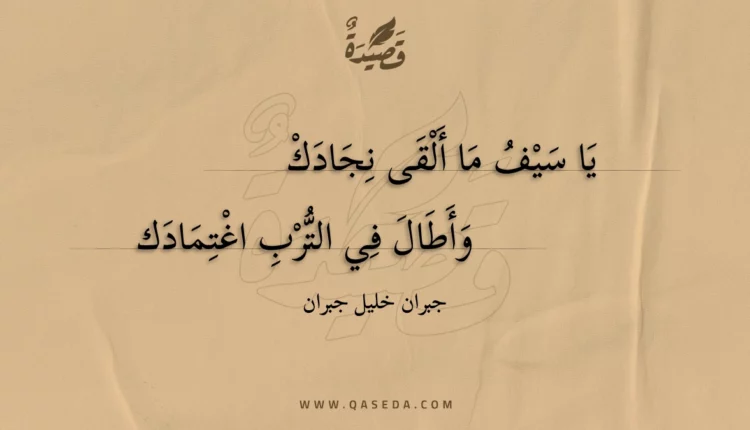 قَصِيدَةٌ
يَا سَيْفُ مَا أَلْقَى نِجَادَكْ
وَأَطَالَ فِي التُّرْبِ اغْتِمَادَك
جبران خليل جبران
WWW.QASEDA.COM